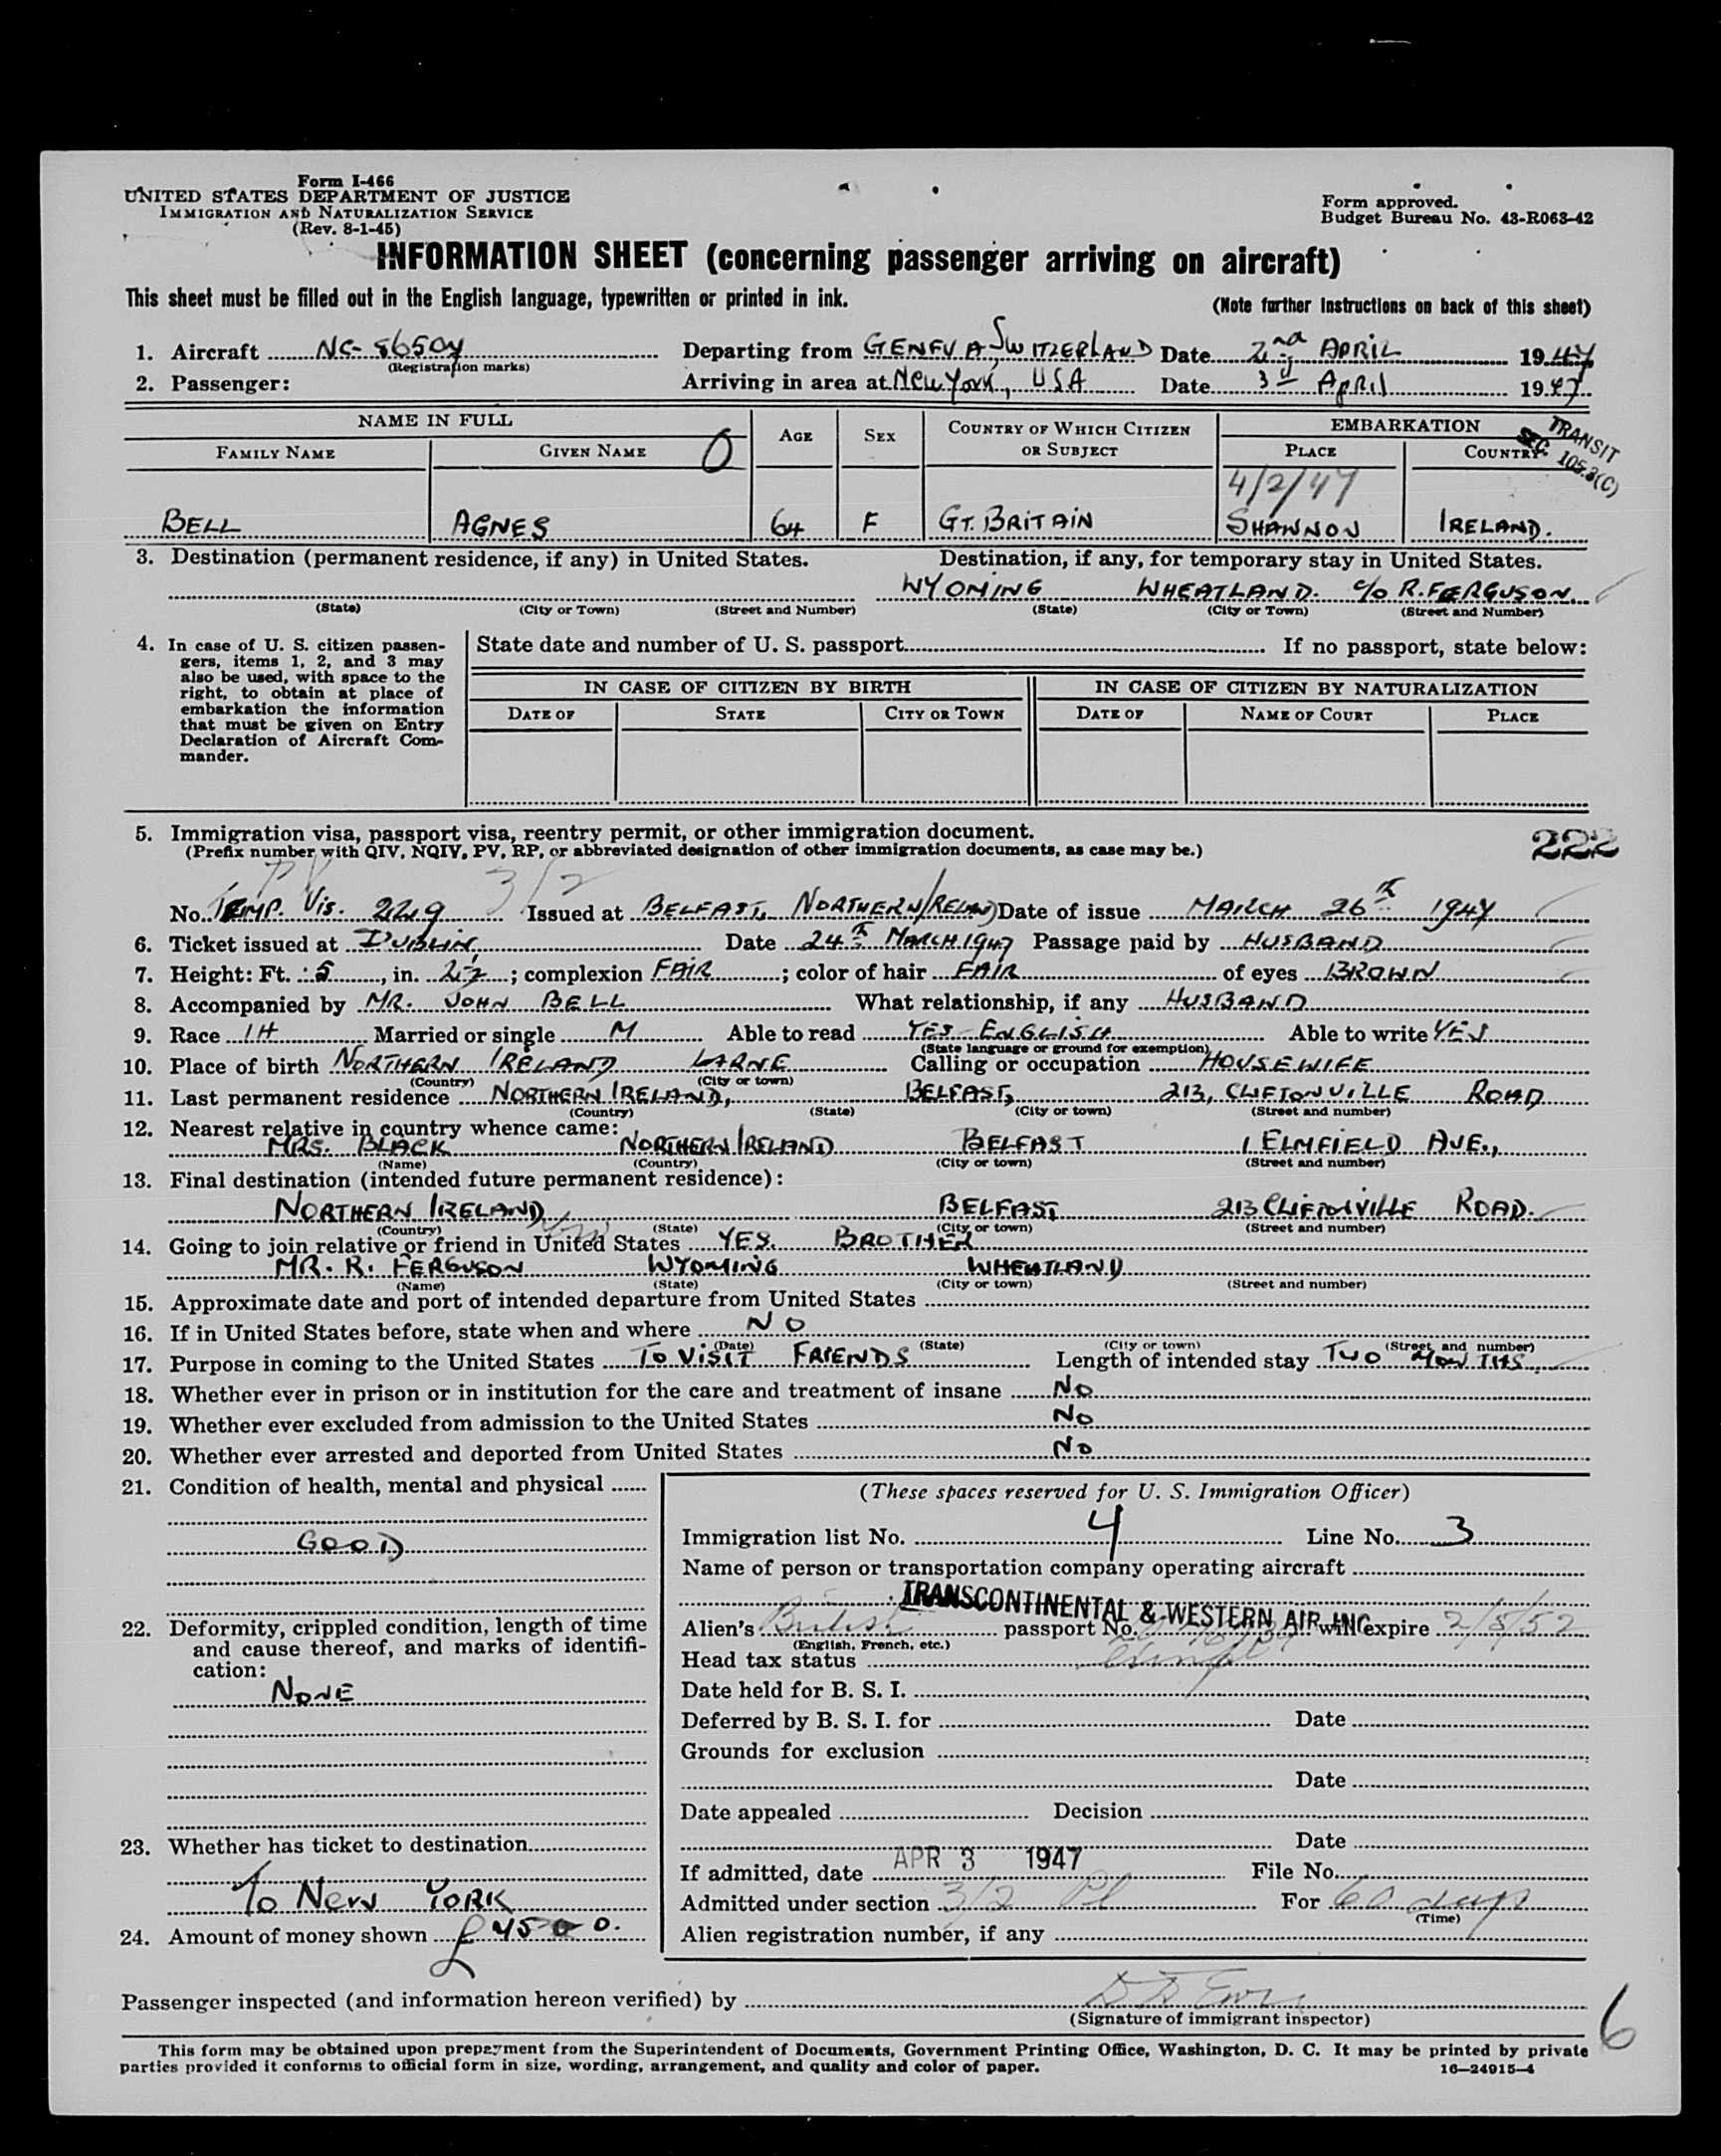 Form I-466
UNITED STATES DEPARTMENT OF JUSTICE
IMMIGRATION AND NATURALIZATION SERVICE
(Rev. 8-1-45)
Form approved.
Budget Bureau No. 43-R063-42
INFORMATION SHEET (concerning passenger arriving on aircraft)
This sheet must be filled out in the English language, typewritten or printed in ink.
(Note further instructions on back of this sheet)
1. Aircraft NC-86504 Departing from GENEVA, SWITZERLAND Date 2nd APRIL 1947
(Registration marks)
2. Passenger: Arriving in area at New York, USA Date 3rd April 1947
NAME IN FULL AGE SEX COUNTRY OF WHICH CITIZEN OR SUBJECT EMBARKATION
TRANSIT
SEC. 105.3(C)
FAMILY NAME GIVEN NAME O PLACE COUNTRY
4/2/47
BELL AGNES 64 F GT. BRITAIN SHANNON IRELAND.
3. Destination (permanent residence, if any) in United States. Destination, if any, for temporary stay in United States.
WYOMING WHEATLAND. c/o R. FERGUSON
(State) (City or Town) (Street and Number) (State) (City or Town) (Street and Number)
4. In case of U. S. citizen passengers, items 1, 2, and 3 may also be used, with space to the right, to obtain at place of embarkation the information that must be given on Entry Declaration of Aircraft Commander.
State date and number of U. S. passport If no passport, state below:
IN CASE OF CITIZEN BY BIRTH IN CASE OF CITIZEN BY NATURALIZATION
DATE OF STATE CITY OR TOWN DATE OF NAME OF COURT PLACE
5. Immigration visa, passport visa, reentry permit, or other immigration document.
(Prefix number with QIV, NQIV, PV, RP, or abbreviated designation of other immigration documents, as case may be.)
222
PV 3/2
No. TEMP. VIS. 229 Issued at BELFAST, NORTHERN IRELAND Date of issue MARCH 26th 1947
6. Ticket issued at DUBLIN, Date 24th MARCH 1947 Passage paid by HUSBAND
7. Height: Ft. 5, in. 2½; complexion FAIR; color of hair FAIR of eyes BROWN
8. Accompanied by MR. JOHN BELL What relationship, if any HUSBAND
9. Race IH Married or single M Able to read YES ENGLISH Able to write YES
(State language or ground for exemption)
10. Place of birth NORTHERN IRELAND LARNE Calling or occupation HOUSEWIFE
(Country) (City or town)
11. Last permanent residence NORTHERN IRELAND, BELFAST, 213, CLIFTONVILLE ROAD
(Country) (State) (City or town) (Street and number)
12. Nearest relative in country whence came:
MRS. BLACK NORTHERN IRELAND BELFAST 1 ELMFIELD AVE.,
(Name) (Country) (City or town) (Street and number)
13. Final destination (intended future permanent residence):
NORTHERN IRELAND BELFAST 213 CLIFTONVILLE ROAD.
(Country) (State) (City or town) (Street and number)
14. Going to join relative or friend in United States YES. BROTHER
MR. R. FERGUSON WYOMING WHEATLAND
(Name) (State) (City or town) (Street and number)
15. Approximate date and port of intended departure from United States
16. If in United States before, state when and where NO
(Date) (State) (City or town) (Street and number)
17. Purpose in coming to the United States TO VISIT FRIENDS Length of intended stay TWO MONTHS.
18. Whether ever in prison or in institution for the care and treatment of insane No
19. Whether ever excluded from admission to the United States No
20. Whether ever arrested and deported from United States No
21. Condition of health, mental and physical
GOOD
22. Deformity, crippled condition, length of time and cause thereof, and marks of identification:
NONE
23. Whether has ticket to destination
To New YORK
24. Amount of money shown £45 0 0.
(These spaces reserved for U. S. Immigration Officer)
Immigration list No. 4 Line No. 3
Name of person or transportation company operating aircraft
TRANSCONTINENTAL & WESTERN AIR INC
Alien's British passport No. will expire 2/5/52
(English, French, etc.)
Head tax status
Date held for B. S. I.
Deferred by B. S. I. for Date
Grounds for exclusion
Date
Date appealed Decision
Date
If admitted, date APR 3 1947 File No.
Admitted under section 3/2 For 60 days
(Time)
Alien registration number, if any
Passenger inspected (and information hereon verified) by
(Signature of immigrant inspector)
6
This form may be obtained upon prepayment from the Superintendent of Documents, Government Printing Office, Washington, D. C. It may be printed by private
parties provided it conforms to official form in size, wording, arrangement, and quality and color of paper.
16—24915-4